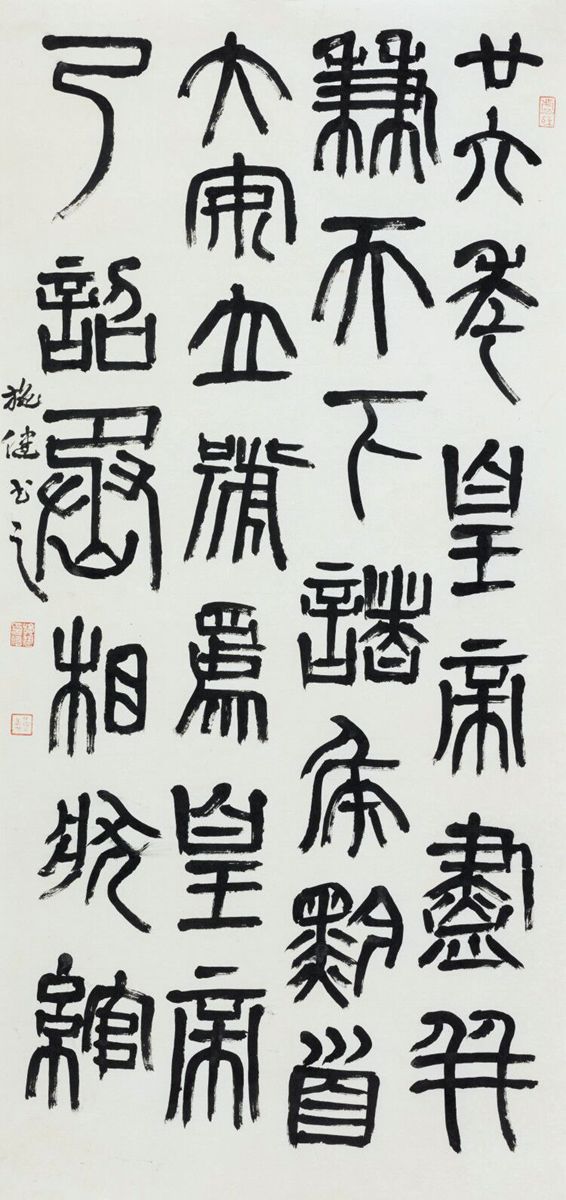 廿六年皇帝盡并
兼天下諸侯黔首
大安立號為皇帝
乃詔丞相狀綰
施健书之